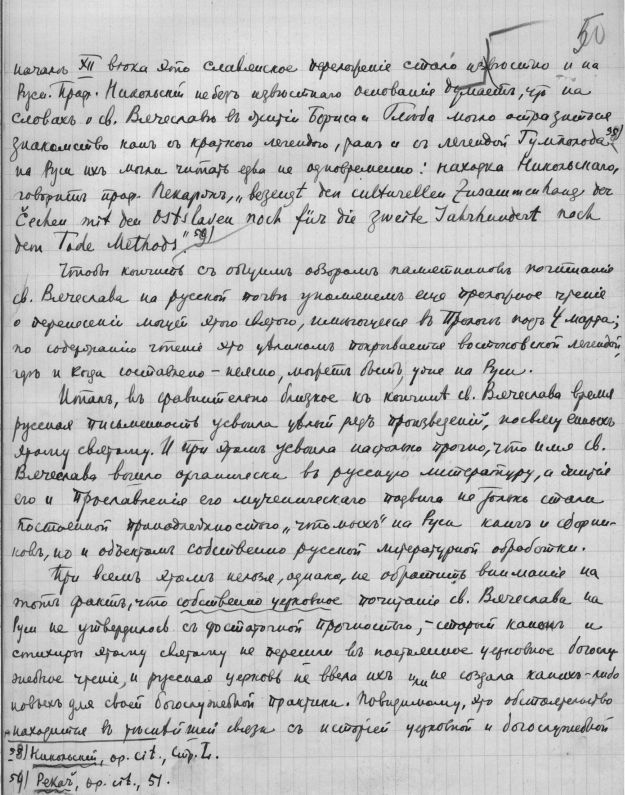 50
началѣ XII вѣка это славянское переложеніе стало извѣстно и на
Руси. Проф. Никольскій не безъ извѣстнаго основанія думаетъ, что на
словахъ о св. Вячеславѣ въ житіи Бориса и Глѣба могло отразиться
знакомство какъ съ краткой легендой, такъ и съ легендой Гумпольда 58)
на Руси ихъ могли читать едва не одновременно: находка Никольскаго,
говоритъ проф. Пекаржъ, „bezeugt den culturellen Zusammenhang der
Čechen mit den Ostslaven noch für die zweite Jahrhundert nach
dem Tode Methods". 59)
Чтобы кончить съ общимъ обзоромъ памятниковъ почитанія
св. Вячеслава на русской почвѣ упомянемъ еще проложное чтеніе
о перенесеніи мощей этого святого, имѣющееся въ Прологѣ подъ 4 марта;
по содержанію чтеніе это цѣликомъ покрывается востоковской легендой,
гдѣ и когда составлено – неясно, можетъ быть уже на Руси.
Итакъ, въ сравнительно близкое къ кончинѣ св. Вячеслава время
русская письменность усвоила цѣлый рядъ произведеній, посвященныхъ
этому святому. И при этомъ усвоила настолько прочно, что имя св.
Вячеслава вошло органически въ русскую литературу, а житіе
его и прославленія его мученическаго подвига не только стали
постоянной принадлежностью „чтомыхъ" на Руси книгъ и сборни-
ковъ, но и объектомъ собственно русской литературной обработки.
При всемъ этомъ нельзя, однако, не обратить вниманіе на
тотъ фактъ, что собственно церковное почитаніе св. Вячеслава на
Руси не утвердилось съ достаточной прочностью, – старый канонъ и
стихиры этому святому не перешли въ постоянное церковное богослу-
жебное чтеніе, и русская церковь не ввела ихъ или не создала какихъ-либо
новыхъ для своей богослужебной практики. Повидимому, это обстоятельство
находится въ тѣснѣйшей связи съ исторіей церковной и богослужебной
58) Никольскій, op. cit., стр. L.
59) Pekař, op. cit., 51.